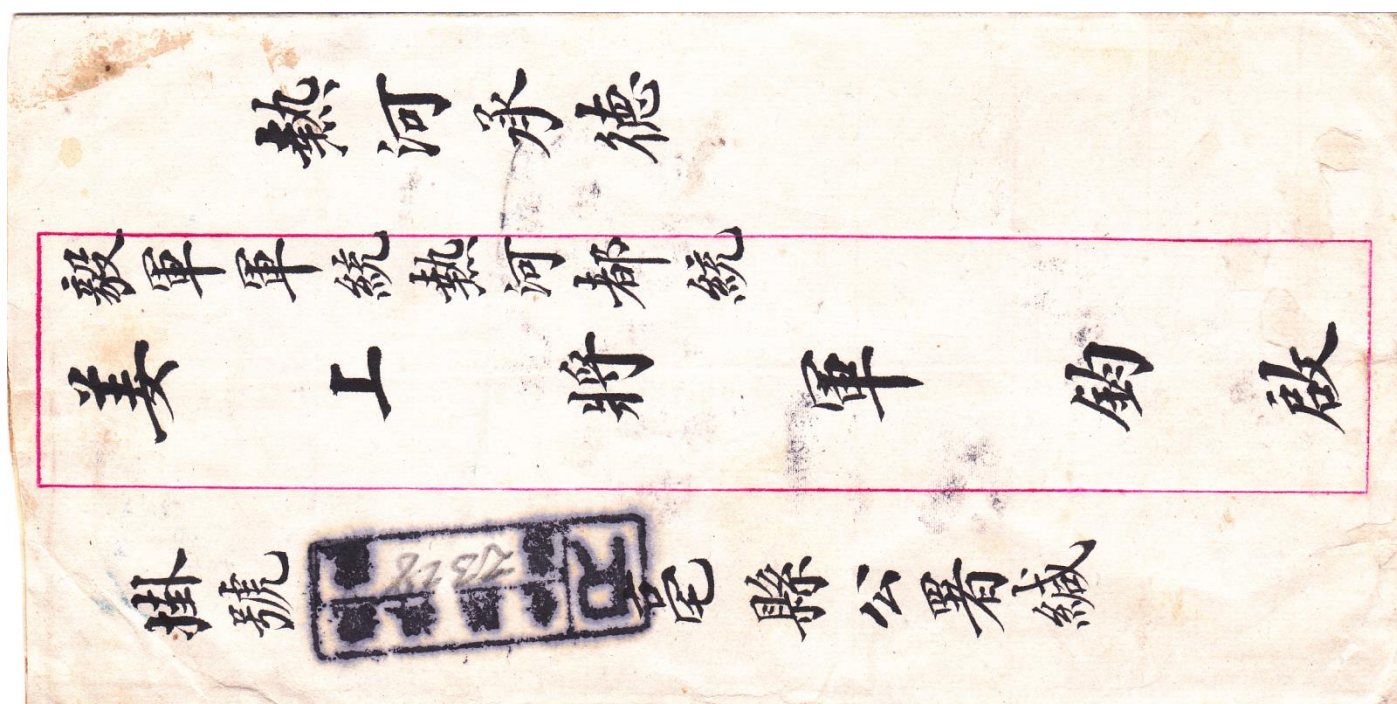 熱河承德
毅軍軍統熱河都統
姜上將軍鈞啟
掛號
R
亳縣公署緘